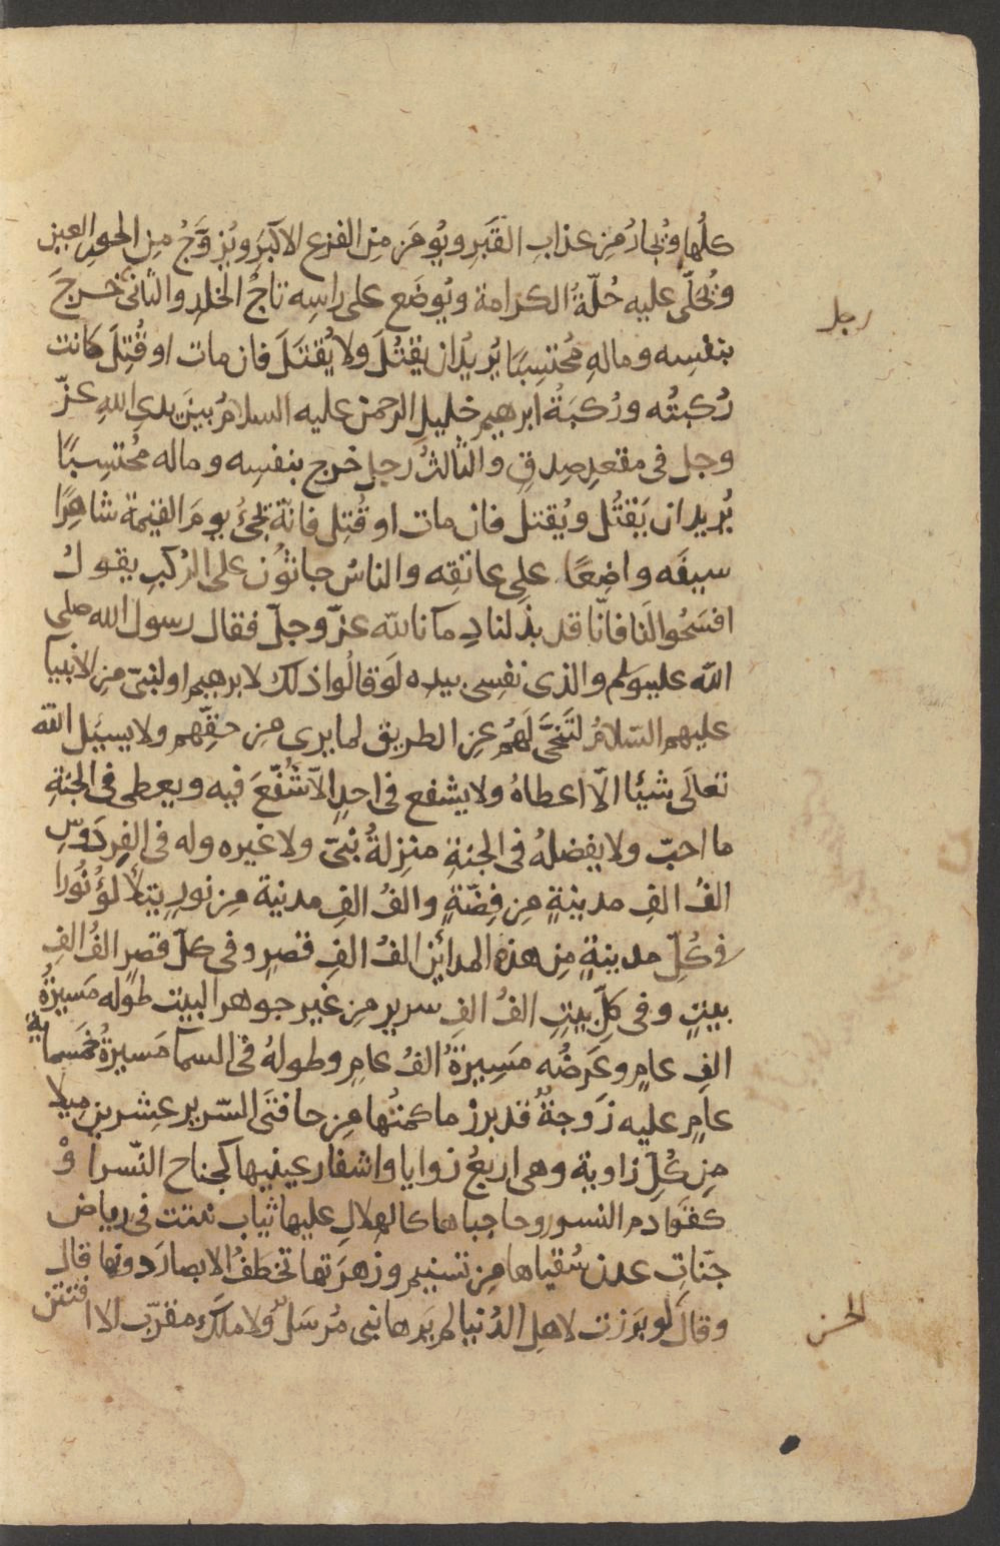 كلُها ويُجارُ مِن عذابِ القَبرِ ويُومَن مِن الفزع الاكبرِ ويُزوَّجُ مِن الحورِ العين
ويُحَلّى عليه حُلّةُ الكرامة ويُوضَع على راسِه تاجُ الخلدِ والثانى خرجَ
رجل
بنفسِه ومالهِ مُحتسِبًا يُريدُ ان يقتُلَ ولا يُقتَلَ فان مات او قُتِلَ كانت
رُكبتُه ورُكبَةُ ابرهيم خليلِ الرحمن عليه السلامُ بينَ يدىِ اللهِ عزّ
وجل فى مقعدِ صِدقٍ والثالثُ رجل خرج بنفسِه وماله مُحتسِبًا
يُريد ان يَقتُل ويُقتل فان مات او قُتِل فانّه يجىُٔ يومَ القيٰمة شاهرًا
سيفَه واضِعًا على عاتقِه والناسُ جاثُون على الرُكَبِ يقولُ
افسَحُوا لَنا فانّا قد بذلنا دِمآنا لله عزّ وجلّ فقال رسول الله صلى
الله عليه وسلم والذى نفسِى بيده لَو قالُوا ذلك لابرهيم او لنبىّ مِن الانبيآ
عليهم السّلامُ لتَنَحَّى لَهُم عِن الطريق لما يرى مِن حقِّهم ولا يسئل الله
تعالَى شيئا الّا اعطاهُ ولا يشفع فى احدٍ الّا شُفّعَ فيه ويعطى فى الجنةِ
ما احبّ ولا يفضلهُ فى الجنةِ منزِلةُ نبىّ ولا غيره وله فى الفِردَوسِ
الفُ الفِ مدينةٍ مِن فِضّةٍ والفُ الفِ مدينة مِن نورٍ يتلألؤُ نُورا
فى كُلّ مدينةٍ مِن هذه المدائن الفُ الفِ قصرٍ وفى كلّ قصرٍ الفُ الفِ
بيتٍ وفى كلِّ بيتٍ الفُ الفِ سرير مِن غير جوهر البيت طوله مَسيرةُ
الفِ عامٍ وعَرضُه مَسِيرةُ الفُ عامِ وطولهُ فى السمآ مَسيرةُ خمسمائة
عامٍ عليه زَوجةٌ قد برز ما كمتُها مِن حافتَى السّرير عِشرين مِيلا
مِن كُلِّ زاوية وهى اربعُ زوايا واشفار عينيها كجناح النّسر اوْ
كقَوادم النسور وحاجباها كالهلالِ عليها ثياب نبتت فى رياض
جنّاتِ عدن سُقياها مِن تسنيم وزهرَتها تخطَفُ الابصارَ دونها قال
الحسن
وقالَ لو بَرَزت لاهلِ الدُنيا لم يَرها نبى مُرسَلٌ ولا ملَك مقرّب الا افتتن